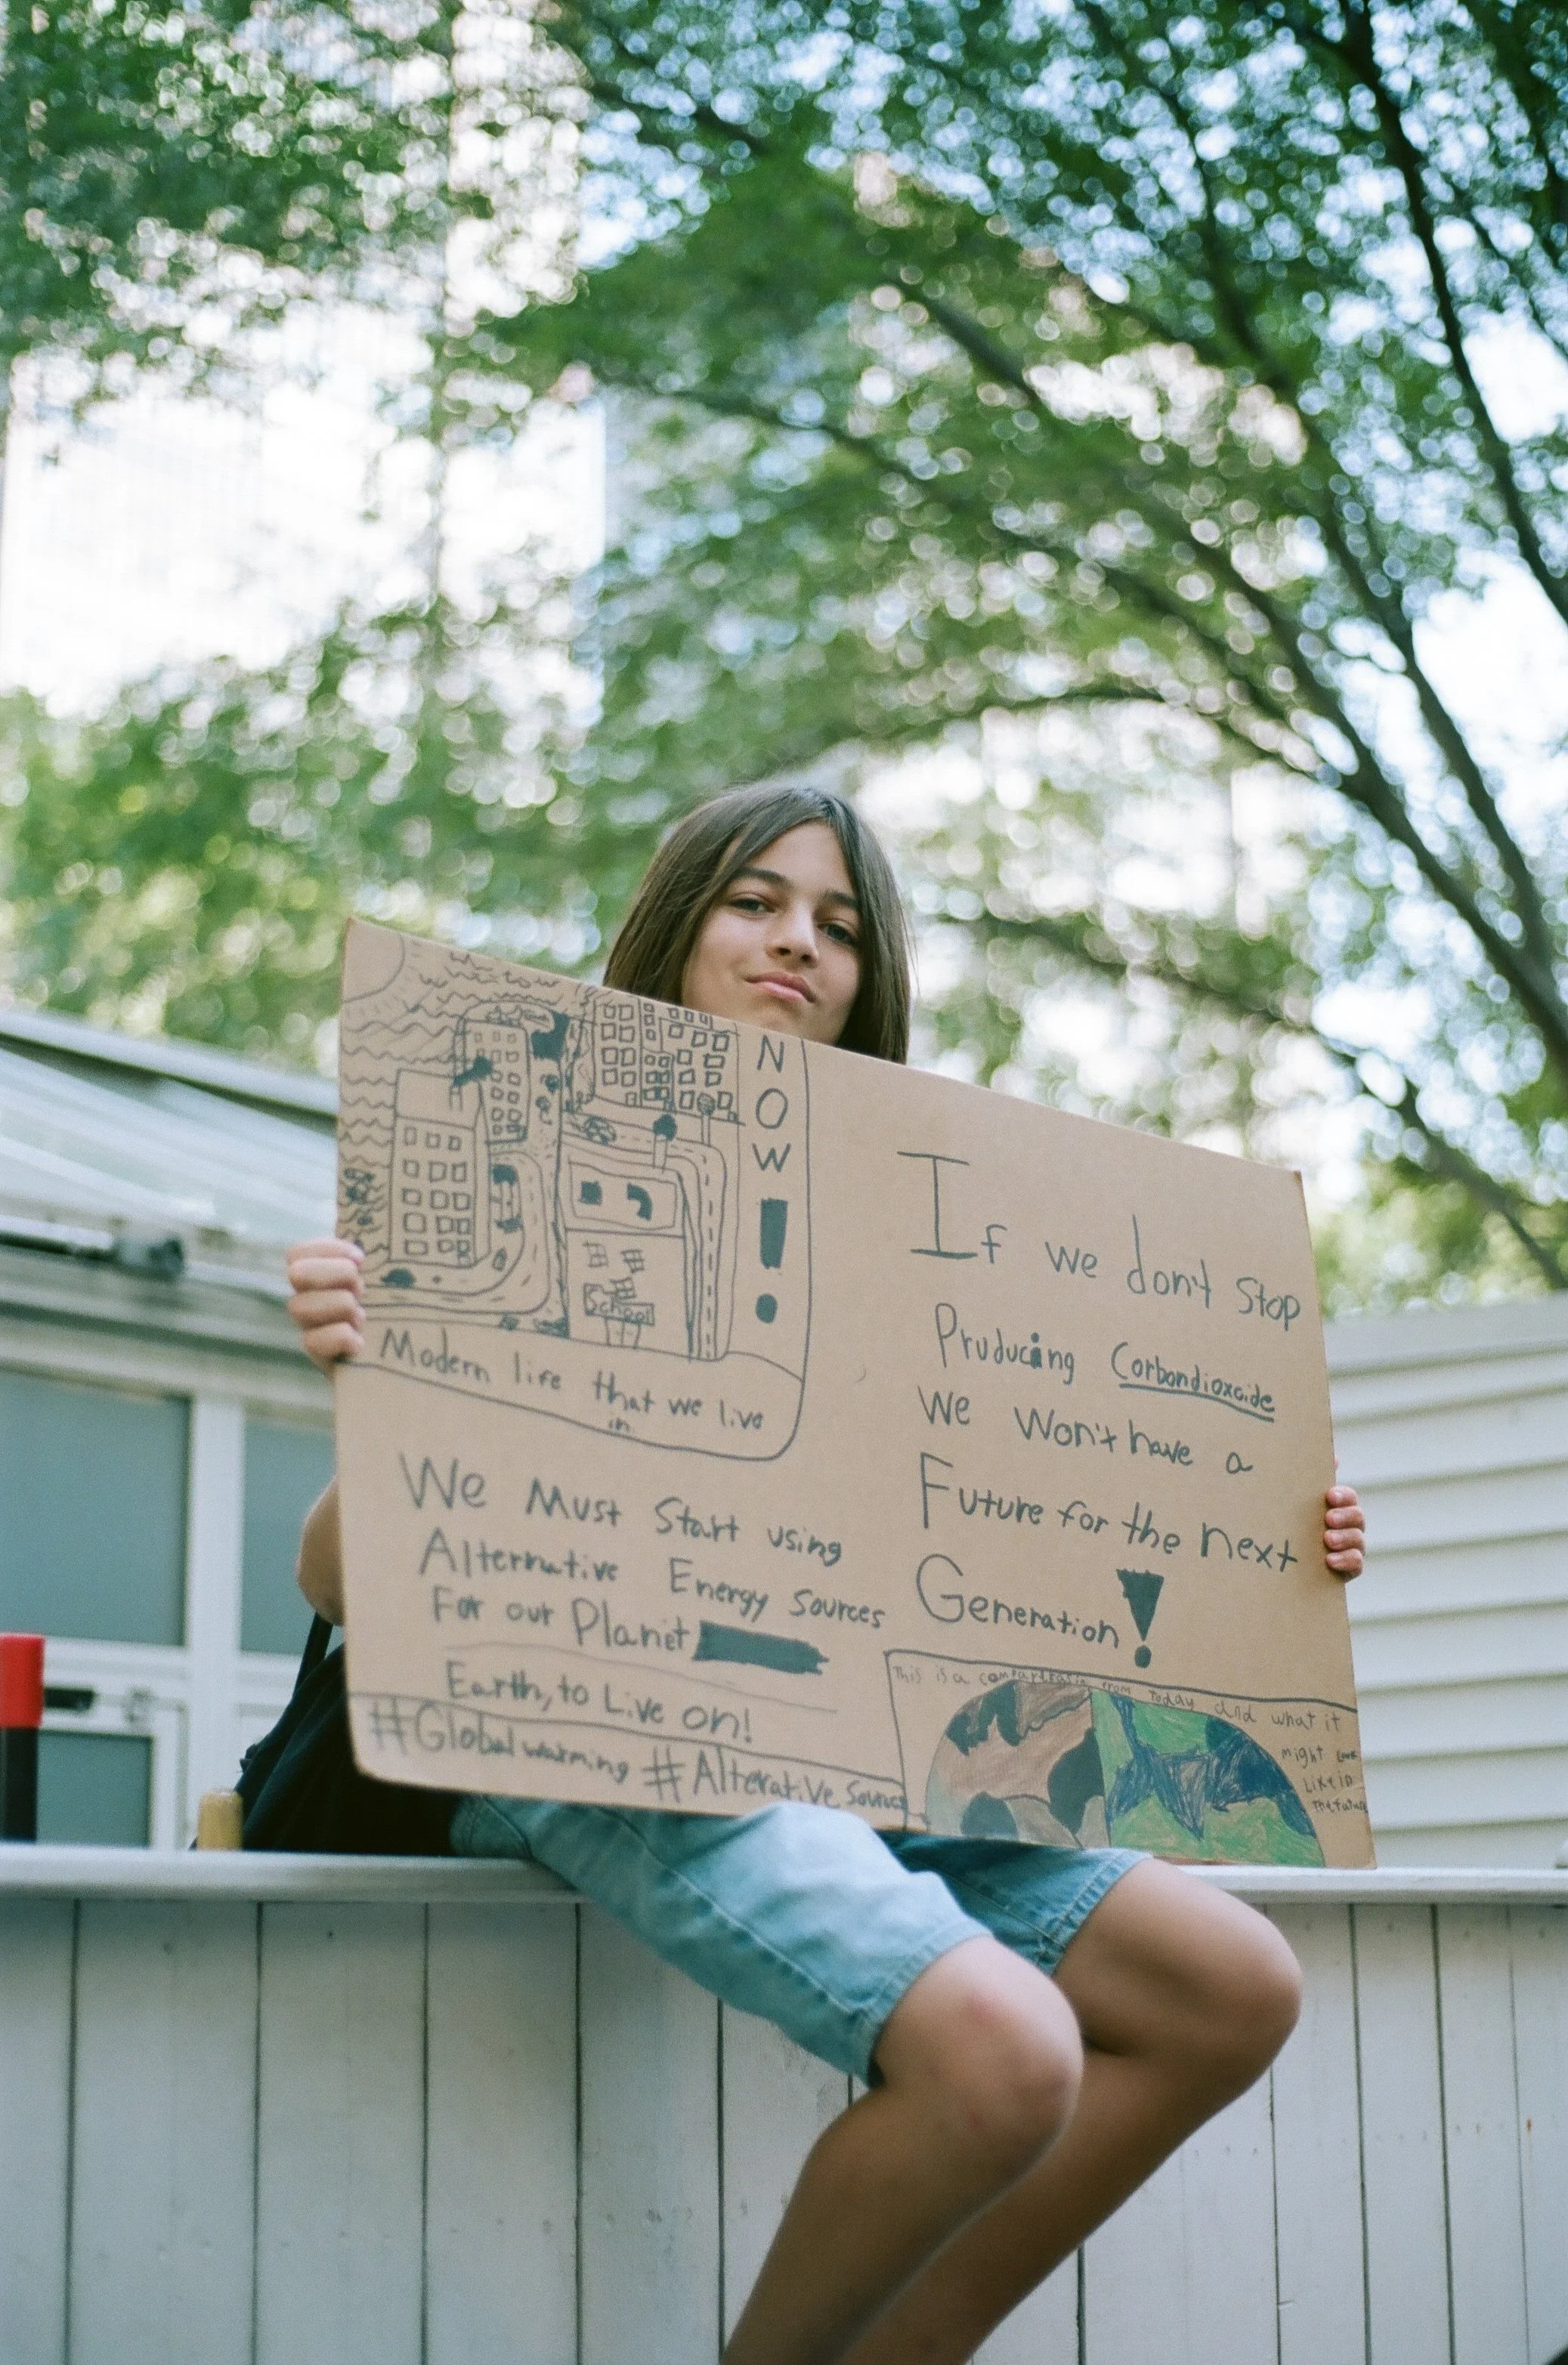 NOW!
School
Modern life that we live
in
We Must Start using
Alternative Energy Sources
For our Planet
Earth, to Live on!
#Globalwarming #Alterative Sources
If we don't Stop
Pruducing Corbondioxcide
We Won't have a
Future for the next
Generation!
This is a from Today and what it
might Look
Like in
The future